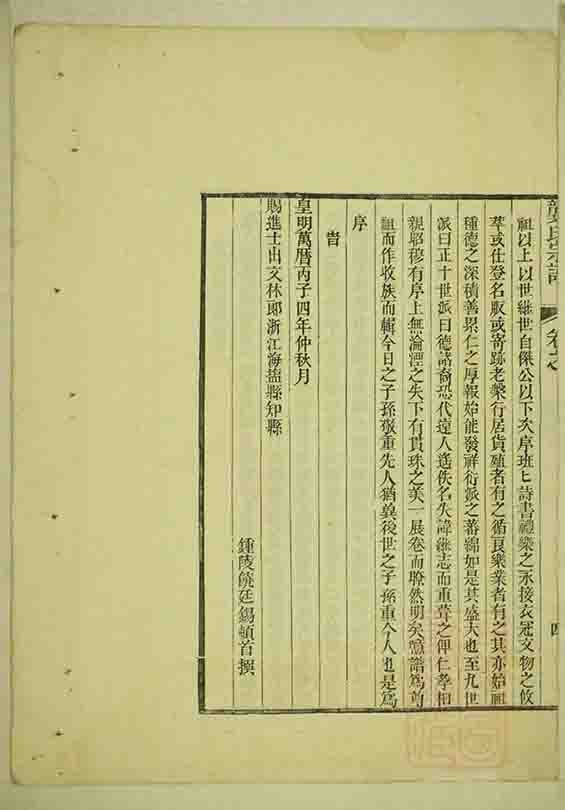 祖以上以世繼世自傑公以下次序班匕詩書禮樂之承接衣冠文物之攸
萃或仕登名版或寄跡老槃行居貨殖者有之循良樂業者有之其亦始祖
種德之深積善累仁之厚報始能發祥衍派之蕃綿如是其盛大也至九世
派曰正十世派曰德諸裔恐代遠人遙佚名失諱繼志而重葺之俾仁孝相
親昭穆有序上無淪湮之失下有貫珠之美一展卷而瞭然明矣 譜爲尊
祖而作收族而輯今日之子孫敬重先人猶冀後世之子孫重今人也是爲
序
旹
皇明萬曆丙子四年仲秋月
賜進士出文林郎浙江海鹽縣知縣
鍾陵饒廷錫頓首撰